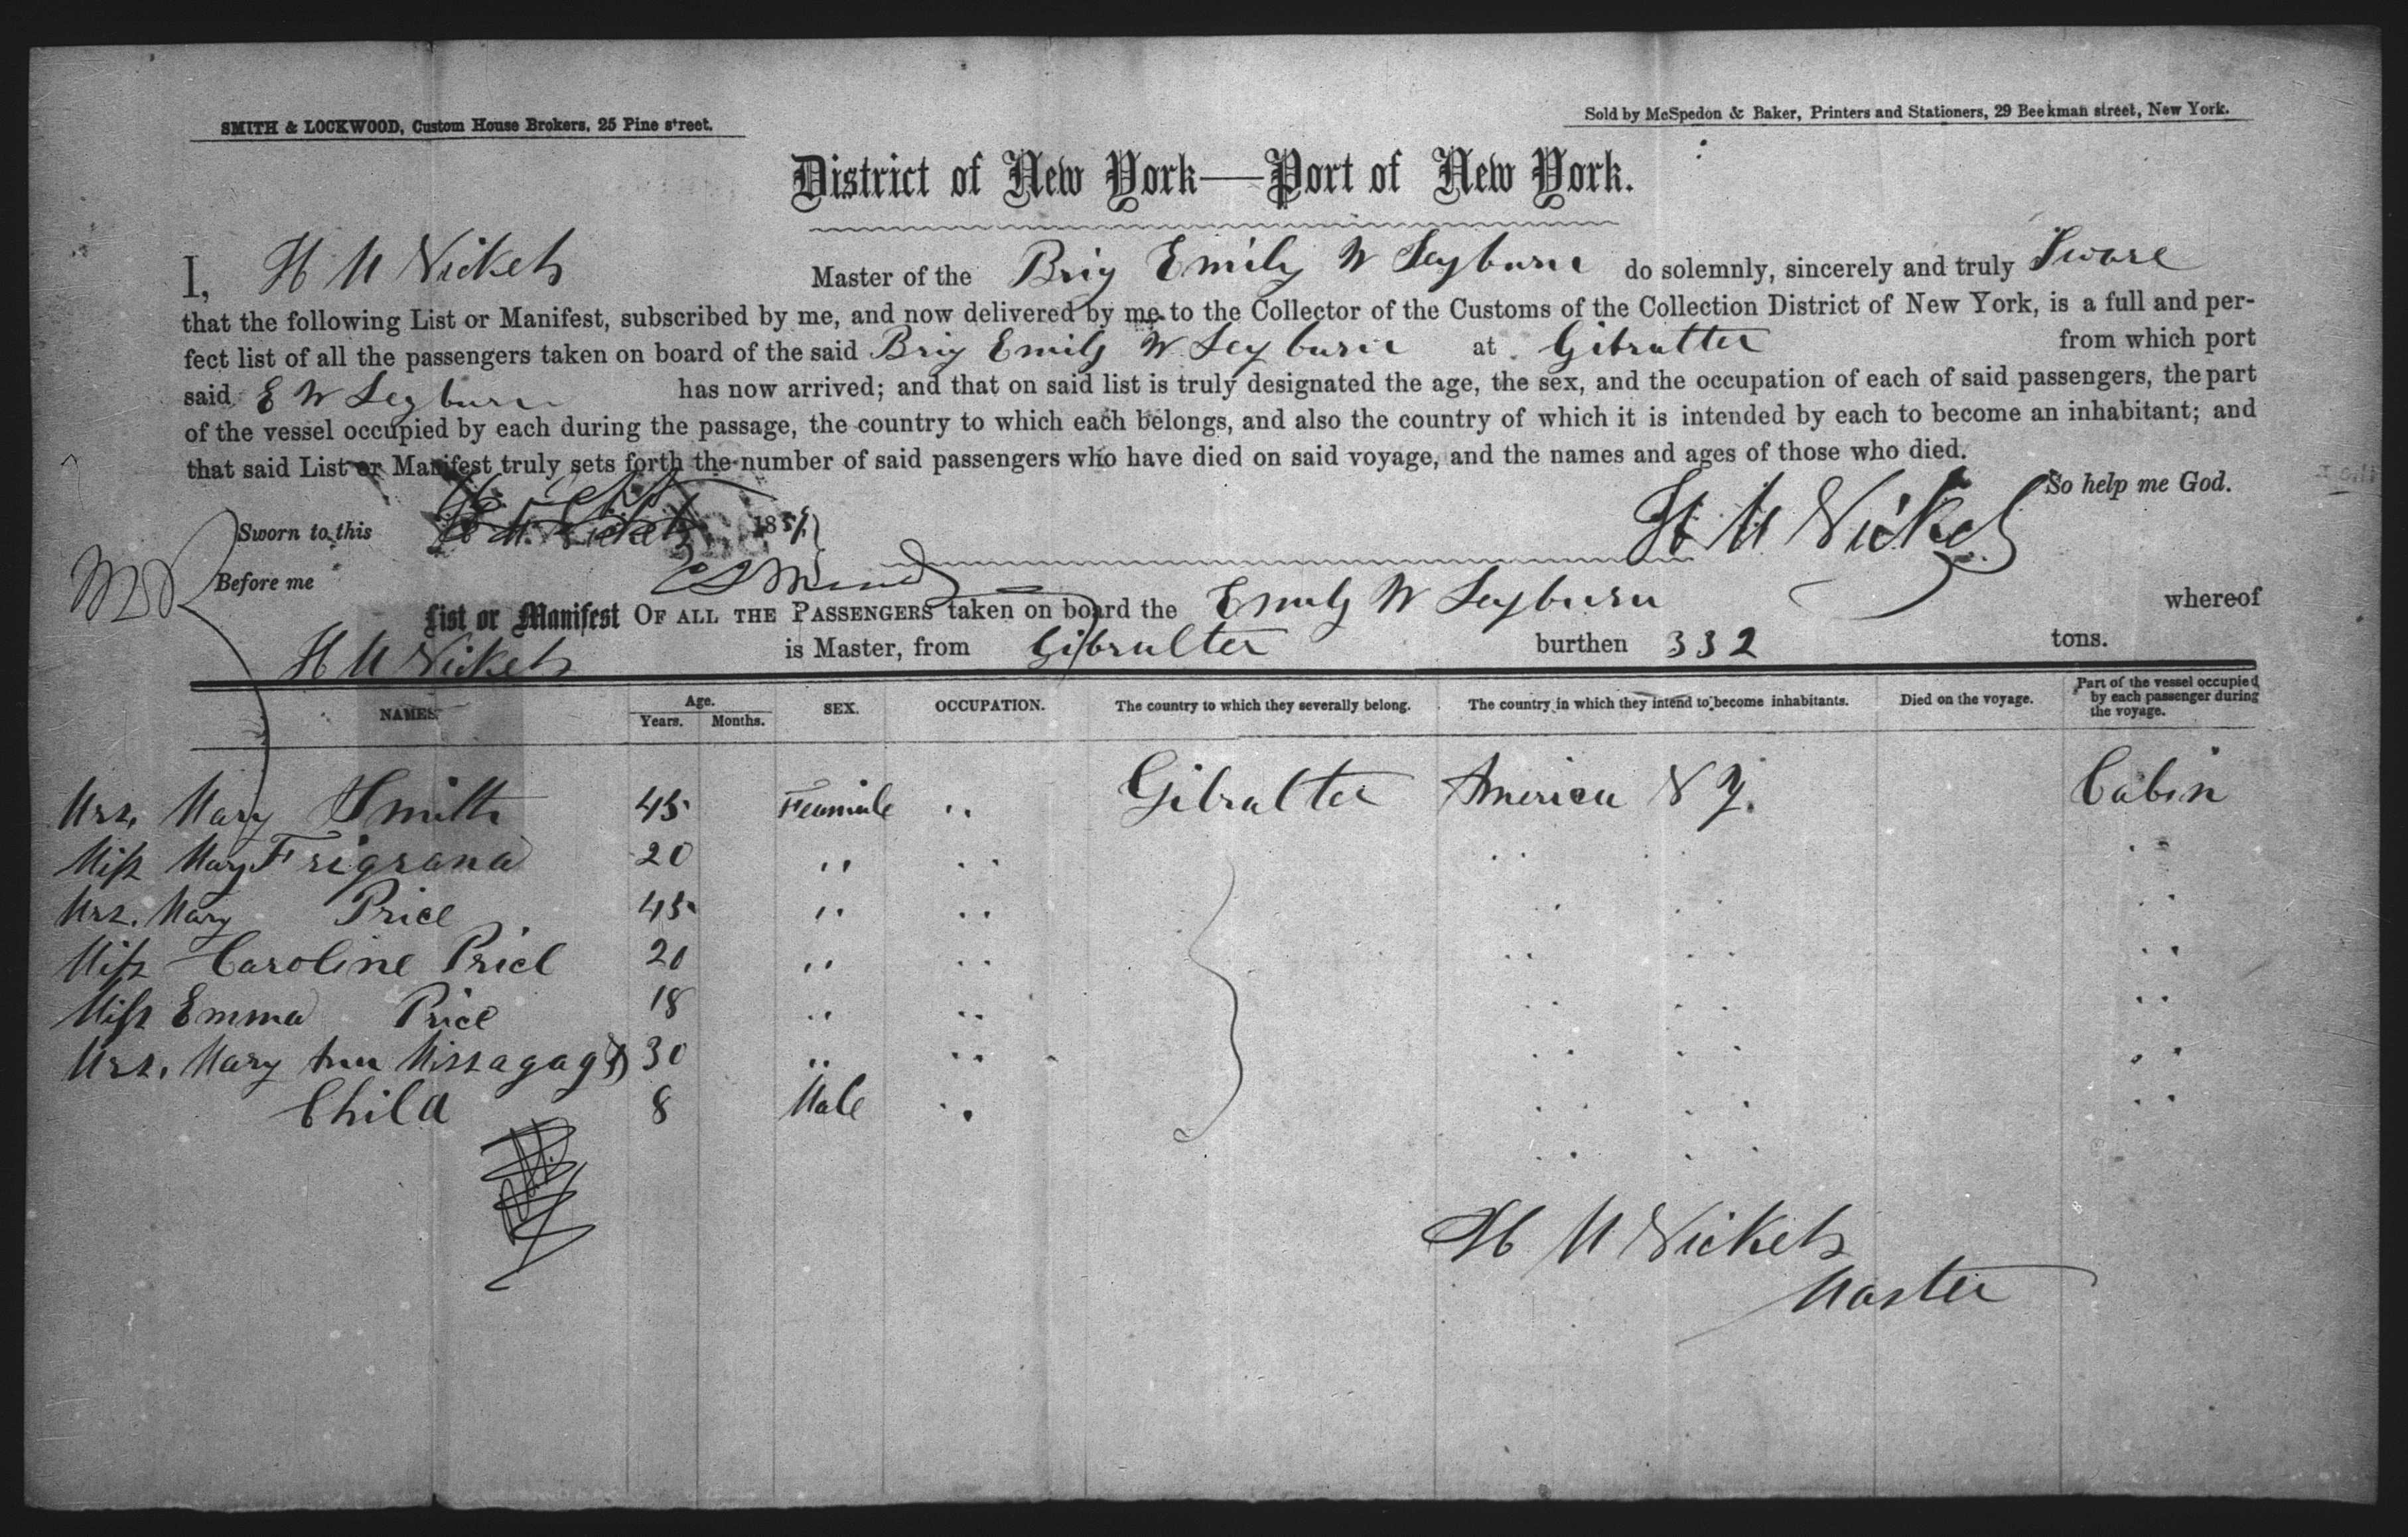 SMITH & LOCKWOOD, Custom House Brokers, 25 Pine street.
Sold by McSpedon & Baker, Printers and Stationers, 29 Beekman street, New York.
District of New York—Port of New York.
I, H M Nickels Master of the Brig Emily W Seyburn do solemnly, sincerely and truly Sware
that the following List or Manifest, subscribed by me, and now delivered by me to the Collector of the Customs of the Collection District of New York, is a full and per-
fect list of all the passengers taken on board of the said Brig Emily W. Seyburn at Gibralter from which port
said E W Seyburn has now arrived; and that on said list is truly designated the age, the sex, and the occupation of each of said passengers, the part
of the vessel occupied by each during the passage, the country to which each belongs, and also the country of which it is intended by each to become an inhabitant; and
that said List or Manifest truly sets forth the number of said passengers who have died on said voyage, and the names and ages of those who died.
So help me God.
Sworn to this 185
H M Nickels
Before me
List or Manifest OF ALL THE PASSENGERS taken on board the Emily W Seyburn whereof
H M Nickels is Master, from Gibralter burthen 332 tons.
NAMES Age. Years. Months. SEX. OCCUPATION. The country to which they severally belong. The country in which they intend to become inhabitants. Died on the voyage. Part of the vessel occupied by each passenger during the voyage.
Mrs. Mary Smith 45 Feamale " Gibralter America N Y. Cabin
Miss Mary Frigrana 20 " " " " "
Mrs. Mary Price 45 " " " " "
Miss Caroline Price 20 " " " " "
Miss Emma Price 18 " " " " "
Mrs. Mary Ann 30 " " " " "
Child 8 Male " " " "
" "
H M Nickels
Master